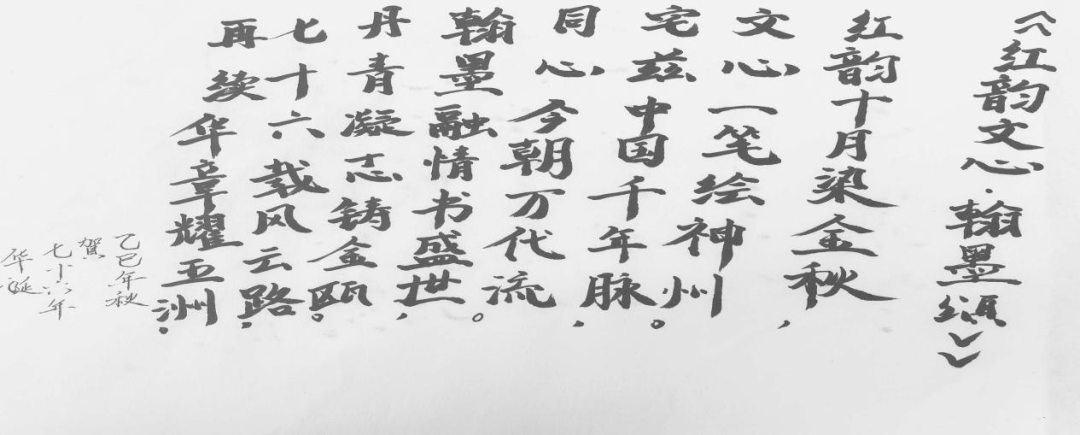 《红韵文心·翰墨颂》
红韵十月染金秋，
文心一笔绘神州。
宅兹中国千年脉，
同心今朝万代流。
翰墨融情书盛世，
丹青凝志铸金瓯。
七十六载风云路，
再续华章耀五洲。
乙巳年秋
贺
七十六年
华诞